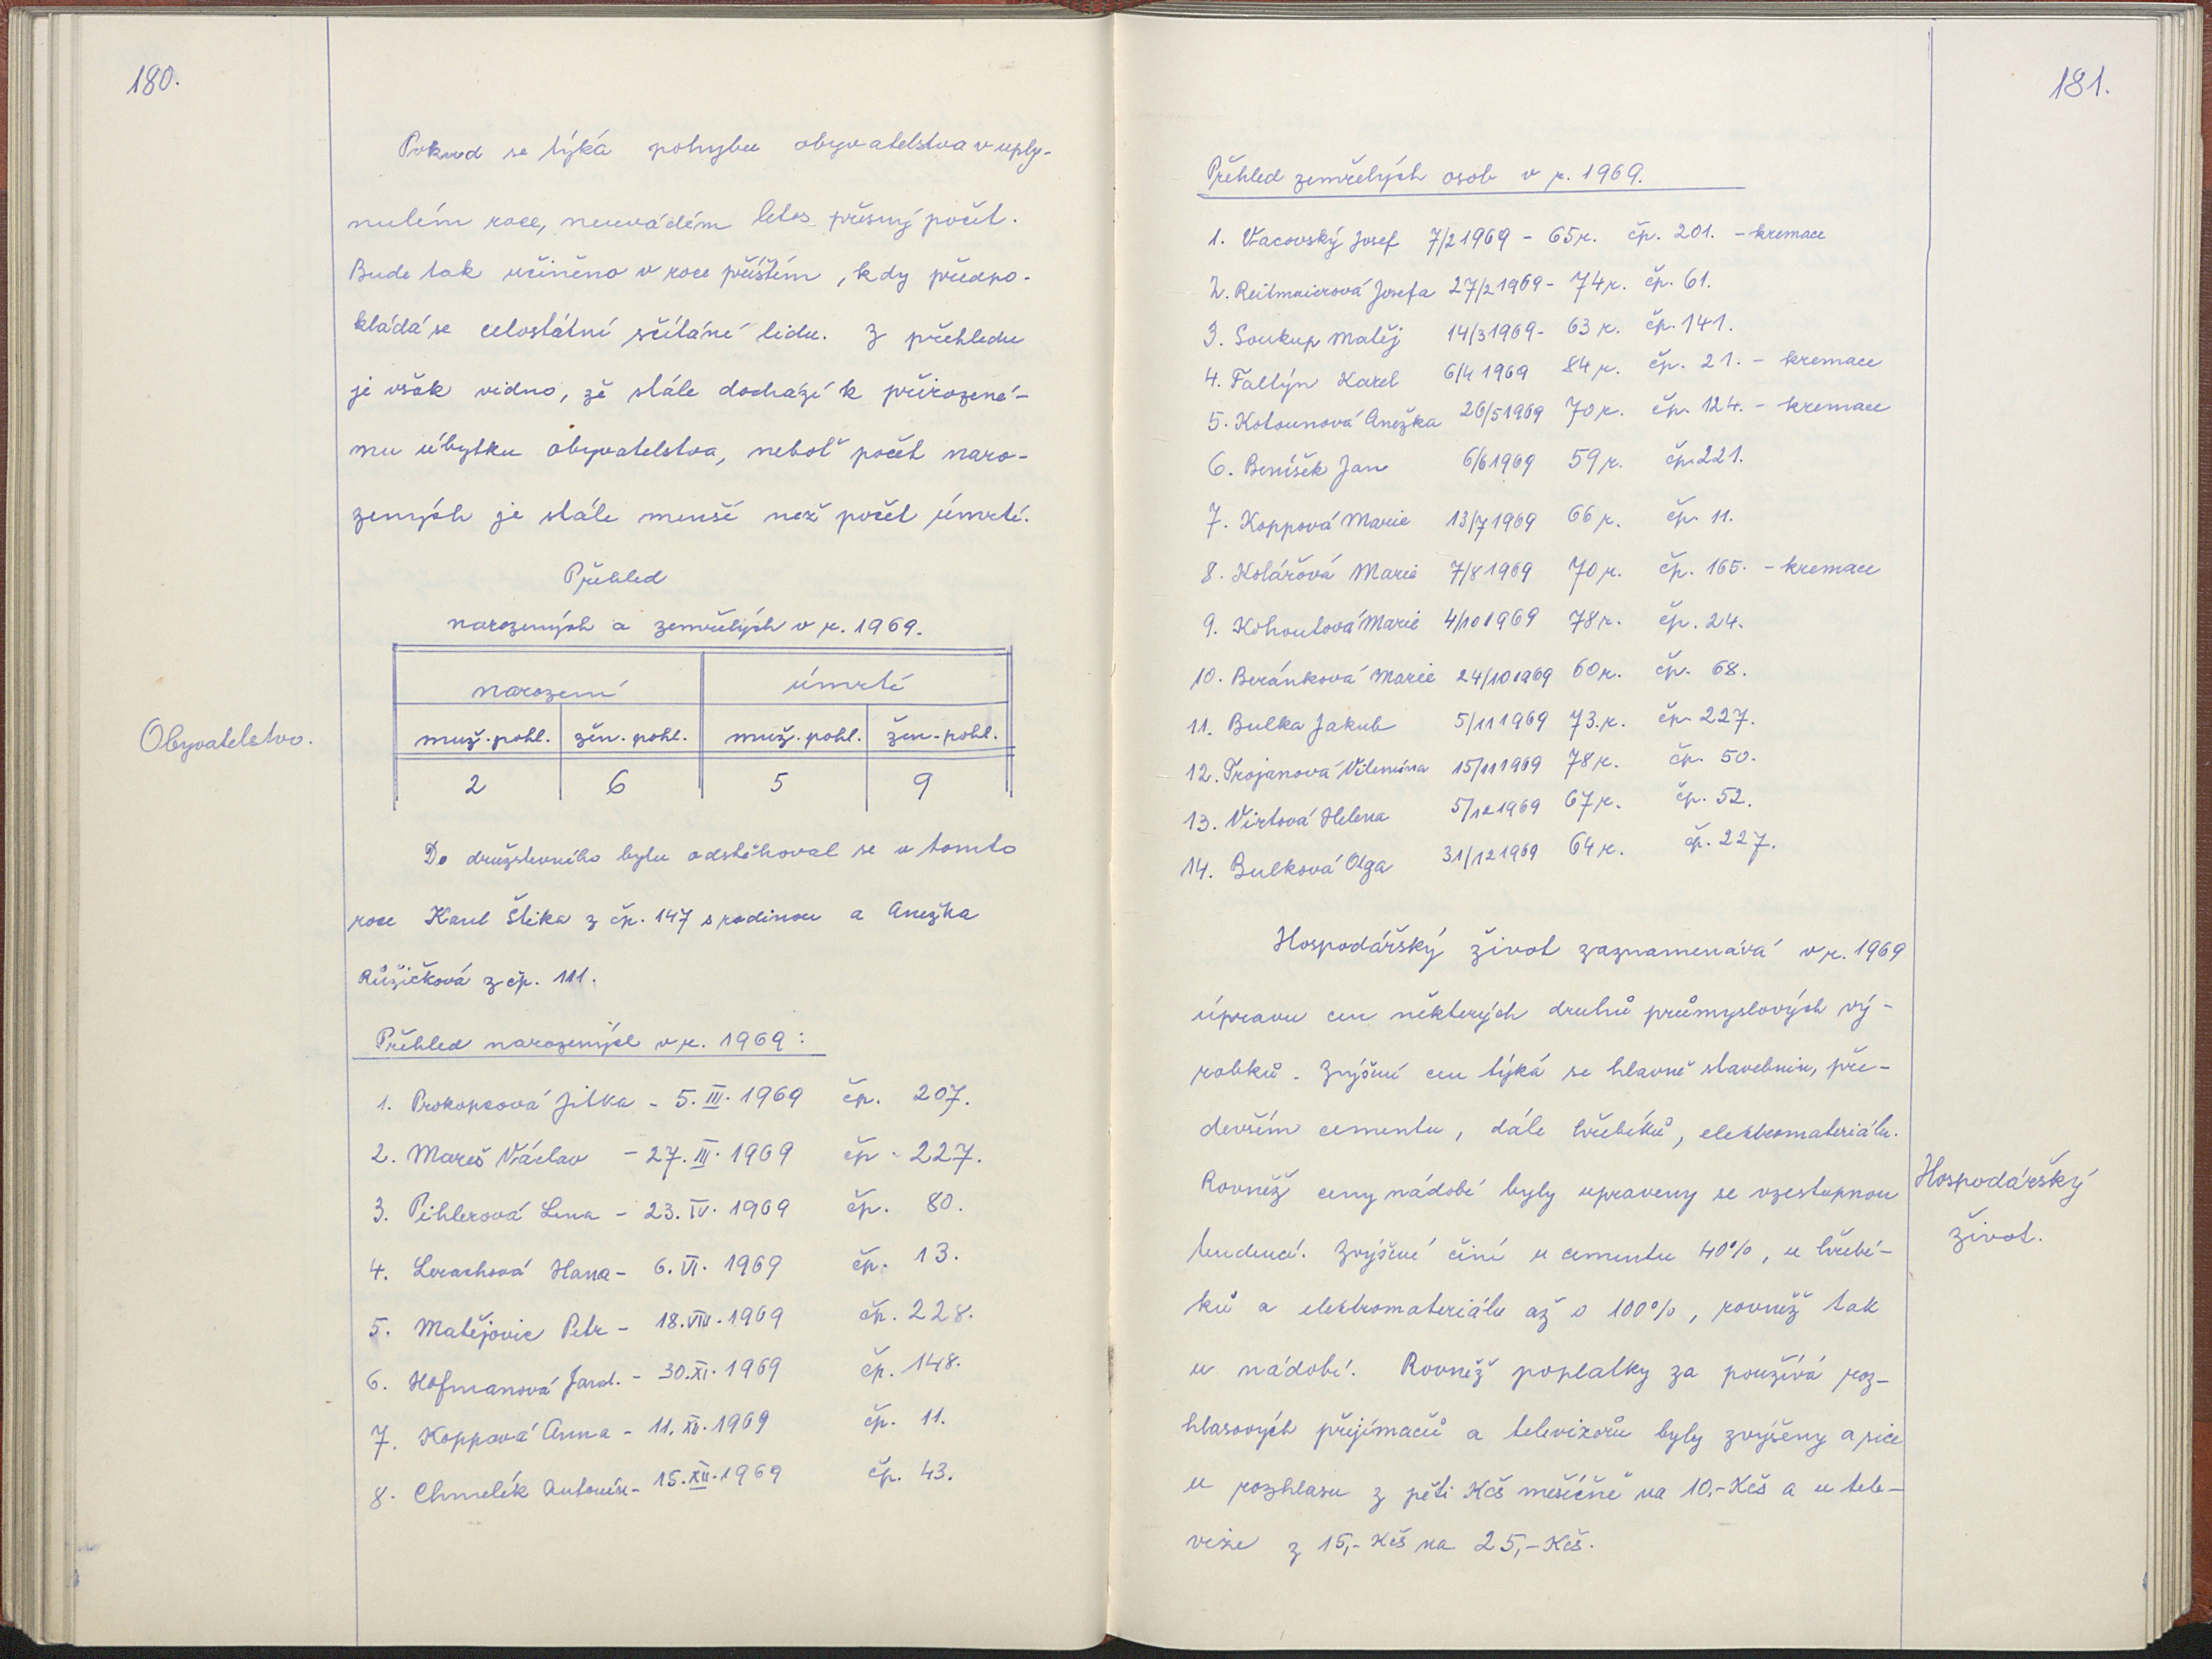 180.
Pokud se týká pohybu obyvatelstva v uply-
nulém roce, neuvádím letos přesný počet.
Bude tak učiněno v roce příštím, kdy předpo-
kládá se celostátní sčítání lidu. Z přehledu
je však vidno, že stále dochází k přirozené-
mu úbytku obyvatelstva, neboť počet naro-
zených je stále menší než počet úmrtí.
Přehled
narozených a zemřelých v r. 1969.
narození úmrtí
muž. pohl. žen. pohl. muž. pohl. žen. pohl.
2 6 5 9
Obyvatelstvo.
Do družstevního bytu odstěhoval se v tomto
roce Karel Štika z čp. 147 s rodinou a Anežka
Růžičková z čp. 111.
Přehled narozených v r. 1969:
1. Prokopcová Jitka - 5. III. 1969 čp. 207.
2. Mareš Václav - 27. III. 1969 čp. 227.
3. Pihlerová Lena - 23. IV. 1969 čp. 80.
4. Lerachová Hana - 6. VI. 1969 čp. 13.
5. Matějovic Petr - 18. VIII. 1969 čp. 228.
6. Hofmanová Jarosl. - 30. XI. 1969 čp. 148.
7. Koppová Anna - 11. XII. 1969 čp. 11.
8. Chmelík Antonín - 15. XII. 1969 čp. 43.
181.
Přehled zemřelých osob v r. 1969.
1. Vacovský Josef 7/2 1969 - 65 r. čp. 201. - kremace
2. Reitmaierová Josefa 27/2 1969 - 74 r. čp. 61.
3. Soukup Matěj 14/3 1969 - 63 r. čp. 141.
4. Faltýn Karel 6/4 1969 84 r. čp. 21. - kremace
5. Kotounová Anežka 26/5 1969 70 r. čp. 124. - kremace
6. Beníšek Jan 6/6 1969 59 r. čp. 221.
7. Koppová Marie 13/7 1969 66 r. čp. 11.
8. Kolářová Marie 7/8 1969 70 r. čp. 165. - kremace
9. Kohoutová Marie 4/10 1969 78 r. čp. 24.
10. Beránková Marie 24/10 1969 60 r. čp. 68.
11. Bulka Jakub 5/11 1969 73. r. čp. 227.
12. Trojanová Vilemína 15/11 1969 78 r. čp. 50.
13. Virtová Helena 5/12 1969 67 r. čp. 52.
14. Bulková Olga 31/12 1969 64 r. čp. 227.
Hospodářský život zaznamenává v r. 1969
úpravu cen některých druhů průmyslových vý-
robků. Zvýšení cen týká se hlavně stavebnin, pře-
devším cementu, dále hřebíků, elektromateriálu.
Rovněž ceny nádobí byly upraveny se vzestupnou
tendencí. Zvýšení činí u cementu 40%, u hřebí-
ků a elektromateriálu až o 100%, rovněž tak
u nádobí. Rovněž poplatky za používá roz-
hlasových přijímačů a televizorů byly zvýšeny a sice
u rozhlasu z pěti Kčs měsíčně na 10,- Kčs a u tele-
vize z 15,- Kčs na 25,- Kčs.
Hospodářský
život.